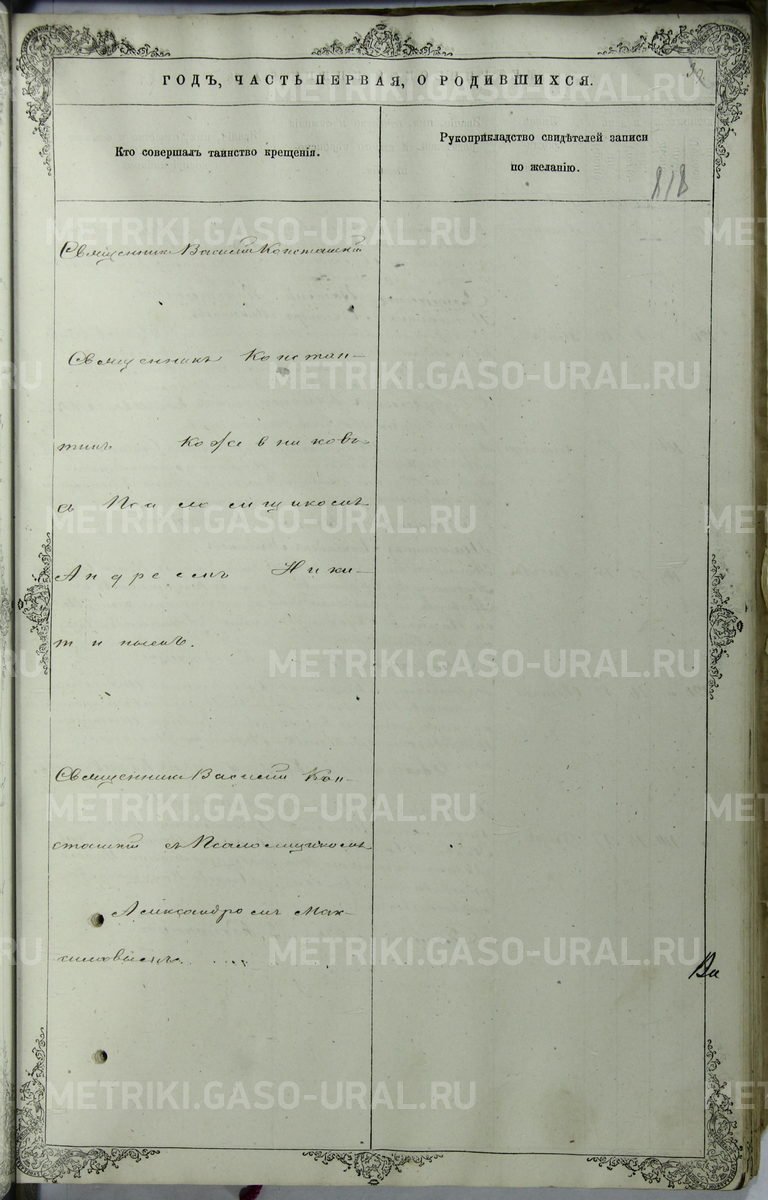 ГОДЪ, ЧАСТЬ ПЕРВАЯ, О РОДИВШИХСЯ.
Кто совершалъ таинство крещенія.
Рукоприкладство свидѣтелей записи
по желанію.
818
Священникъ Василій
Священникъ Констан-
тинъ Кожевниковъ
съ Псаломщикомъ
Андреемъ Ники-
тинымъ.
Священникъ Василій Кон-
съ Псаломщикомъ
Александромъ Мак-
METRIKI.GASO-URAL.RU